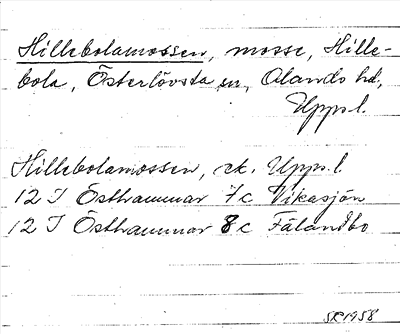 Hillebolamossen, mosse, Hille-
bola, Österlövsta sn, Olands hd,
Uppl.
Hillebolamossen, ek. Uppsl.
12 I Östhammar 7c Vikasjön
12 I Östhammar 8c Fälandbo
1958